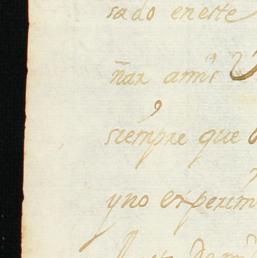 sado eneste
ñar amis
siempre que
yno experim